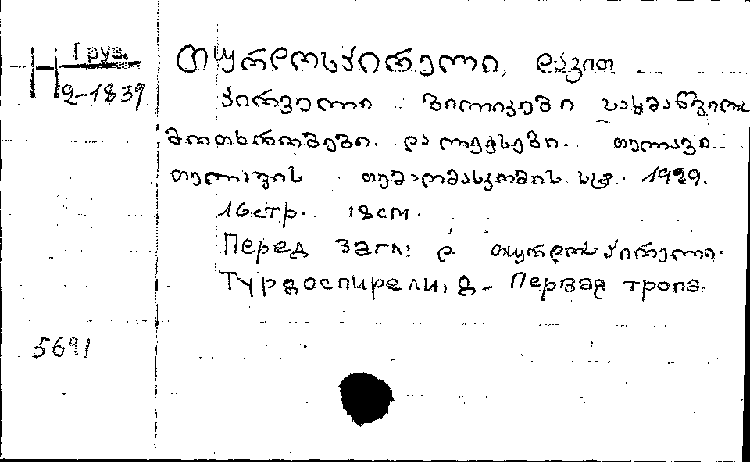 Груз.
Н
2-1839
თურდოსპირელი, დავით
პირველი ბილიკები საყმაწვილო
მოთხრობები და ლექსები. თელავი
თელავის სტ. 1929.
16стр. 18см.
Перед загл: დ თურდოსპირელი.
Турдоспирели, Д. Первая тропа.
5691